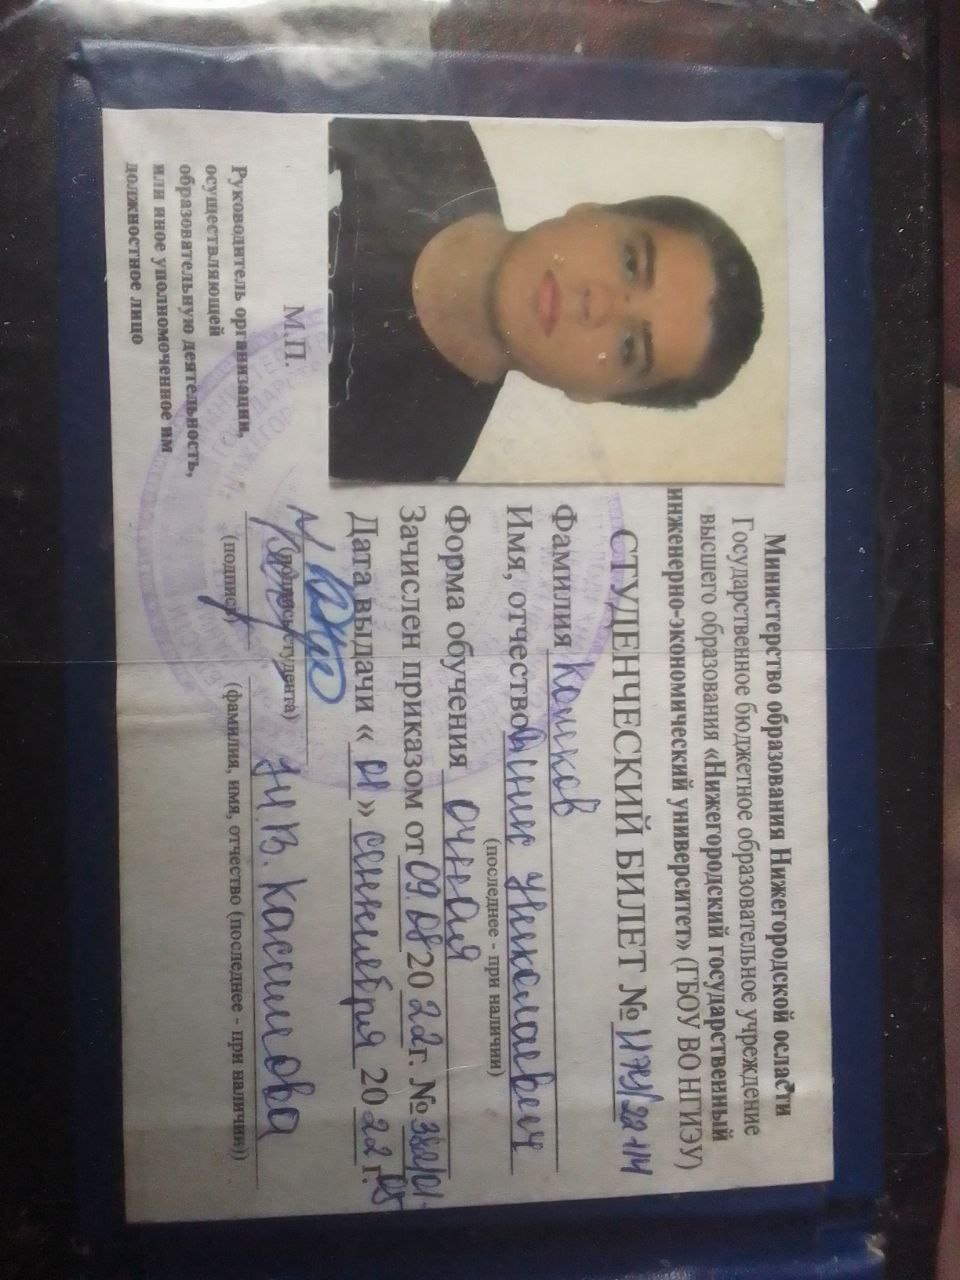 Министерство образования Нижегородской осласти
Государственное бюджетное образовательное учреждение
высшего образования «Нижегородский государственный
инженерно-экономический университет» (ГБОУ ВО НГИЭУ)
СТУДЕНЧЕСКИЙ БИЛЕТ №
Фамилия
Имя, отчество Николаевич
(последнее - при наличии)
Форма обучения очная
Зачислен приказом от 09.08 20 22 г. №
Дата выдачи « 01 » сентября 20 22 г.
М.П.
(подпись студента)
Руководитель организации,
осуществляющей
образовательную деятельность,
или иное уполномоченное им
должностное лицо
(подпись)
Н.В. Касимова
(фамилия, имя, отчество (последнее - при наличии))